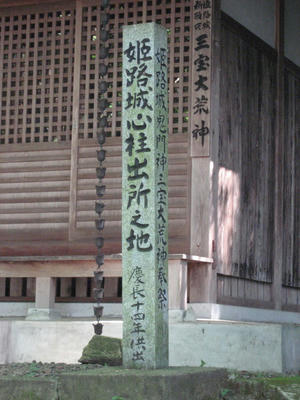 三宝大荒神
姫路城鬼門神三宝大荒神奉祭
姫路城心柱出所之地
慶長十四年供出